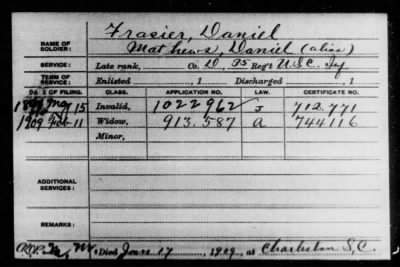 Frasier, Daniel
NAME OF SOLDIER: Mathews, Daniel (alias)
SERVICE: Late rank, Co. D, 95 Reg't U.S.C. Inf.
TERM OF SERVICE: Enlisted , 1 Discharged , 1
DATE OF FILING. CLASS. APPLICATION NO. LAW. CERTIFICATE NO.
May 15 Invalid, 1022962 J 712.771
1909 Feb 11 Widow, 913.587 A 744116
Minor,
ADDITIONAL SERVICES:
REMARKS:
Died Jan 17, 1909, at Charleston S.C.